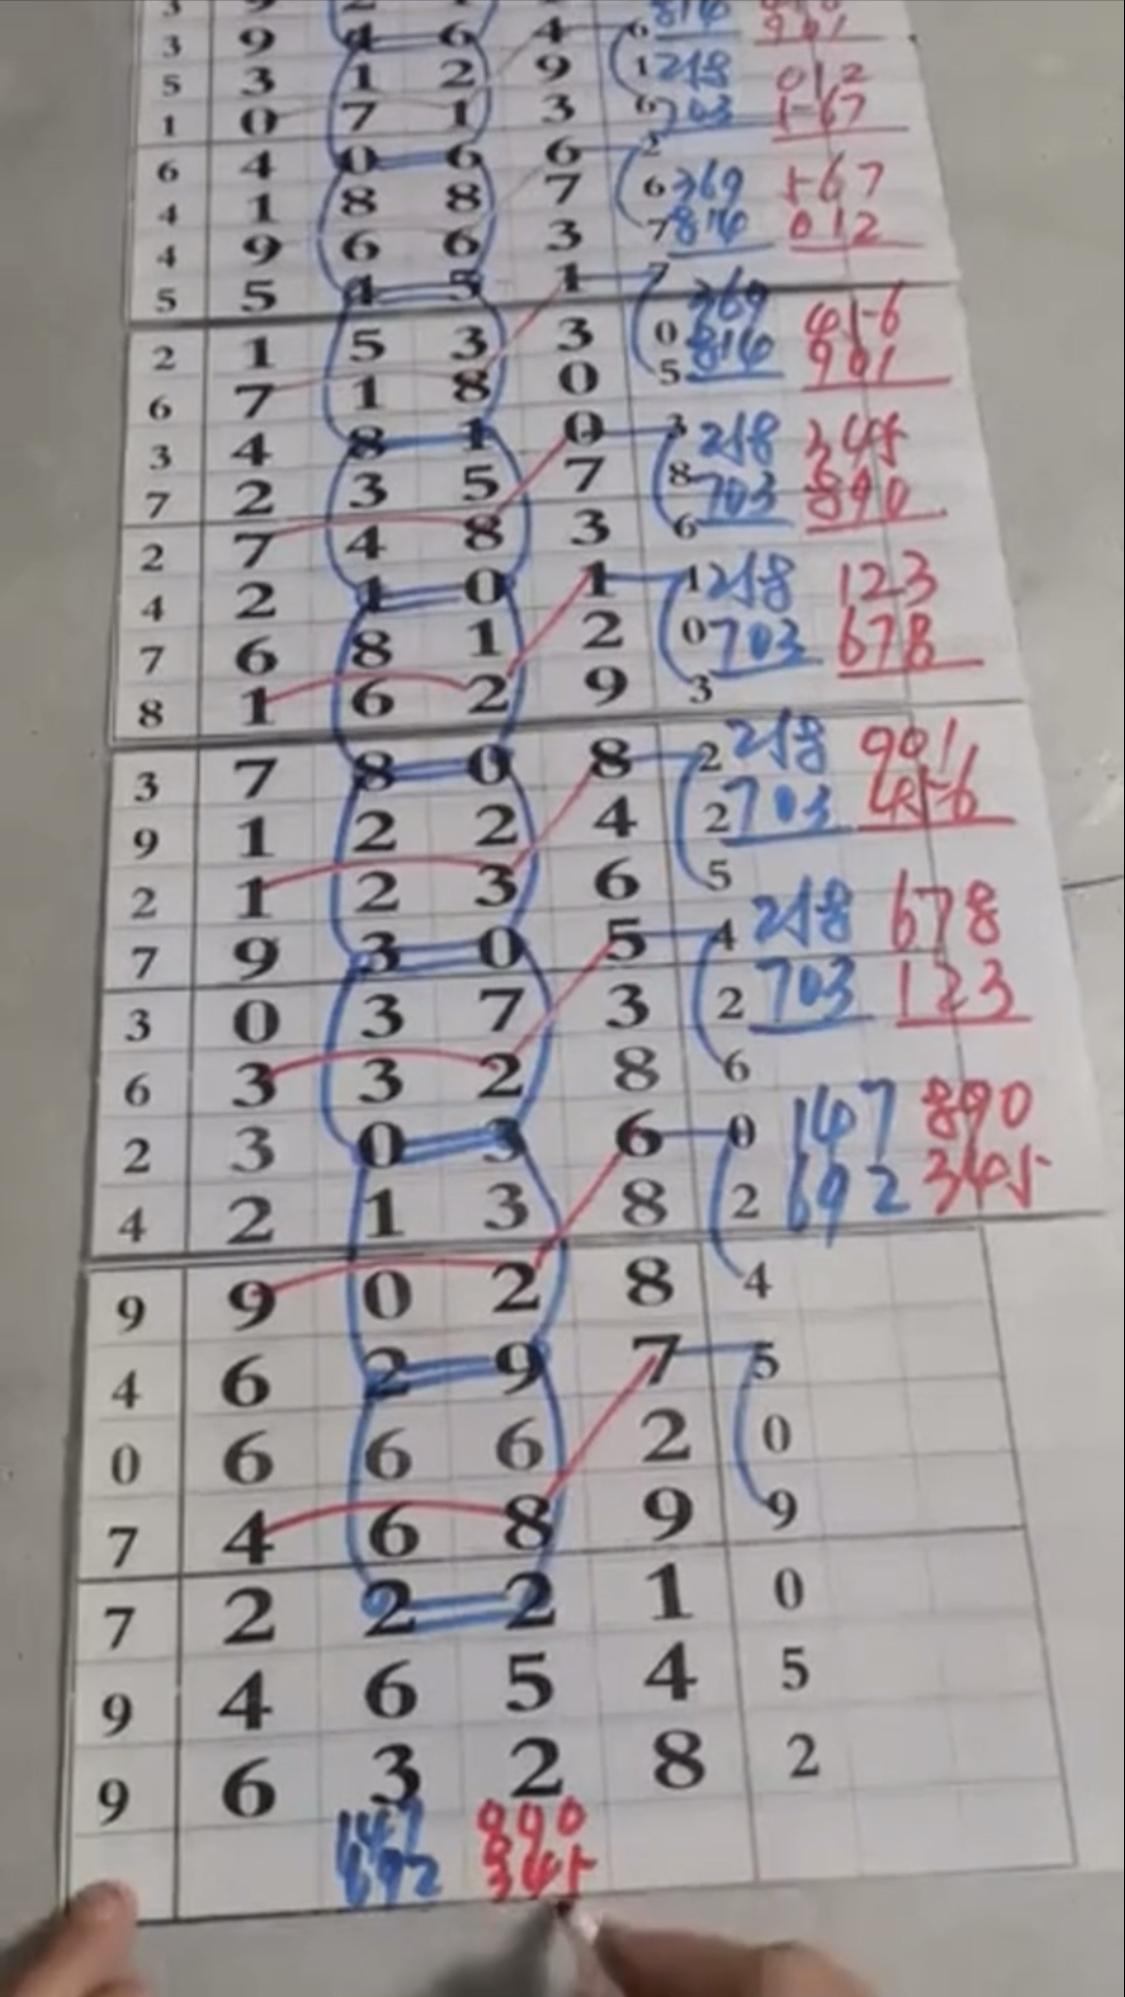 3 9 4 6 4 6
5 3 1 2 9 1 218 012
1 0 7 1 3 6 703 567
6 4 0 6 6 2
4 1 8 8 7 6 369 567
4 9 6 6 3 7 814 012
5 5 4 5 1 7 369 456
2 1 5 3 3 0 814 901
6 7 1 8 0 5
3 4 8 1 0 3 258 345
7 2 3 5 7 8 703 890
2 7 4 8 3 6
4 2 1 0 1 1 258 123
7 6 8 1 2 0 703 678
8 1 6 2 9 3
3 7 8 0 8 2 258 901
9 1 2 2 4 2 703 456
2 1 2 3 6 5
7 9 3 0 5 4 258 678
3 0 3 7 3 2 703 123
6 3 3 2 8 6
2 3 0 3 6 0 147 890
4 2 1 3 8 2 692 345
9 9 0 2 8 4
4 6 2 9 7 5
0 6 6 6 2 0
7 4 6 8 9 9
7 2 2 2 1 0
9 4 6 5 4 5
9 6 3 2 8 2
147 890
692 345